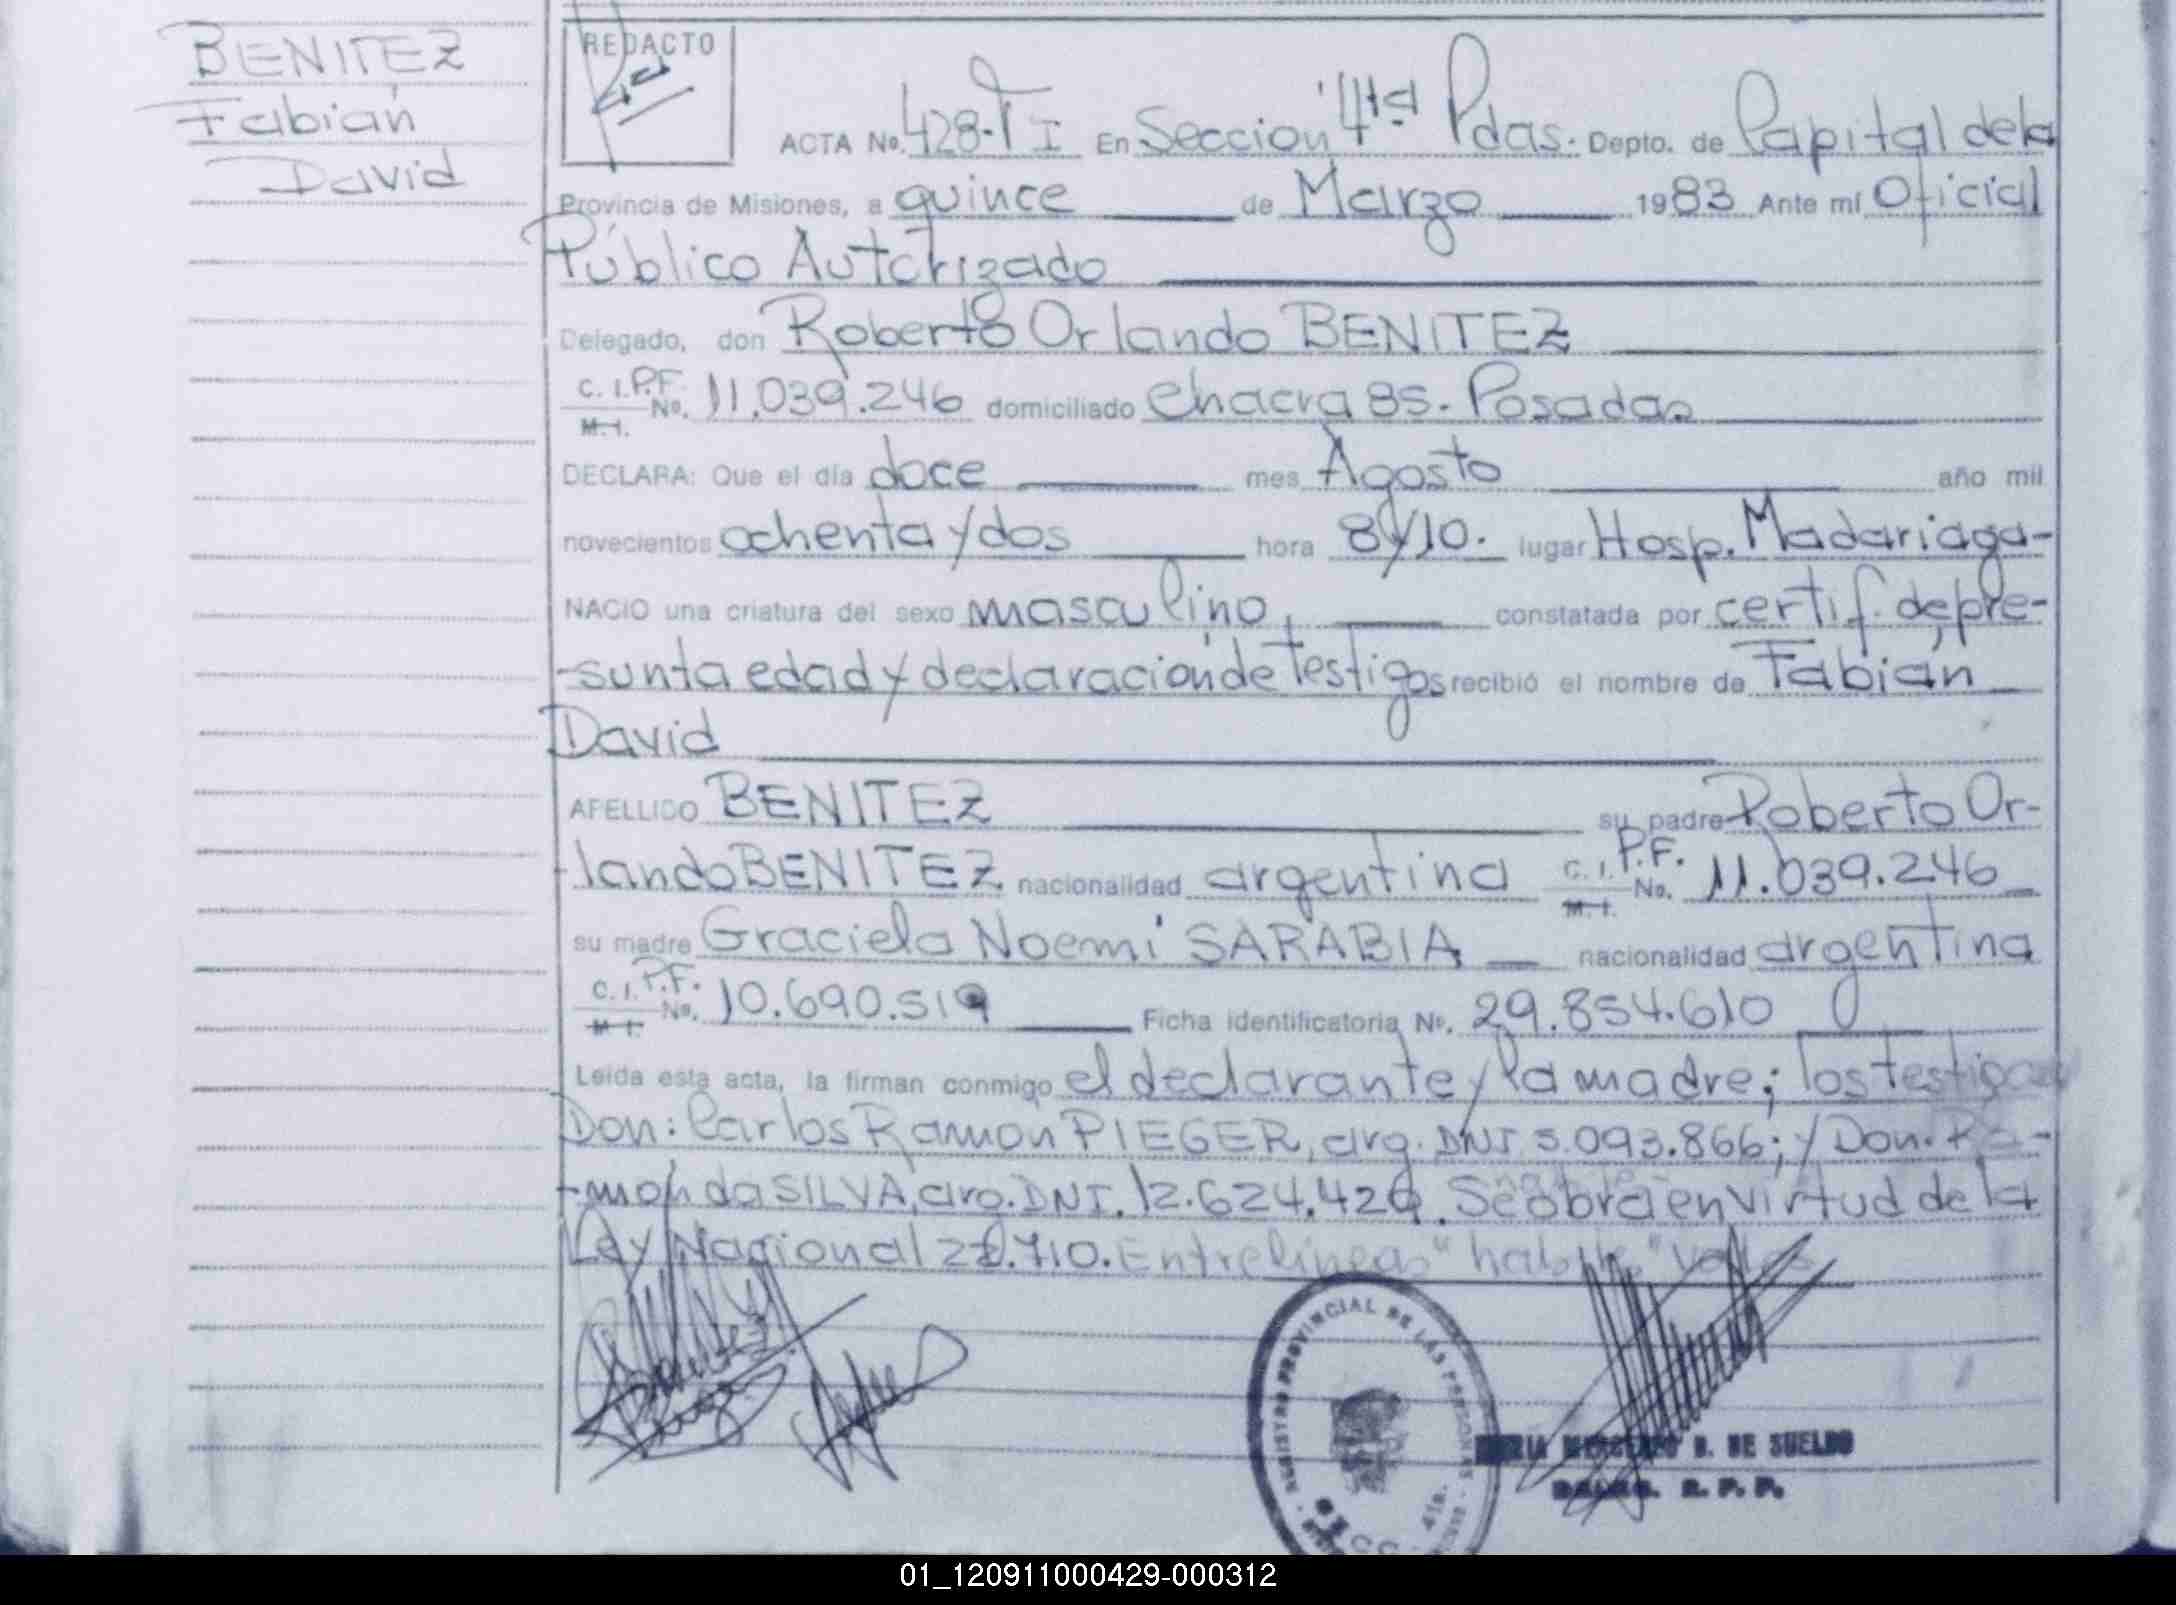 BENITEZ
Fabián
David
REDACTO
ACTA No. 428-TI En Seccion 4ta Pdas. Depto. de Capital dela
Provincia de Misiones, a quince de Marzo 1983 Ante mí Oficial
Público Autorizado
Delegado, don Roberto Orlando BENITEZ
C. I. P.F. No. 11.039.246 domiciliado Chacra 85. Posadas
M. I.
DECLARA: Que el día doce mes Agosto año mil
novecientos ochenta y dos hora 8y10. lugar Hosp. Madariaga-
NACIO una criatura del sexo masculino, constatada por certif. de pre-
-sunta edad y declaración de Testigos recibió el nombre de Fabián
David
APELLIDO BENITEZ su padre Roberto Or-
-lando BENITEZ nacionalidad argentina C. I. P.F. No. 11.039.246
M. I.
su madre Graciela Noemi SARABIA nacionalidad argentina
C. I. P.F. No. 10.690.519 Ficha identificatoria No. 29.854.610
M I.
Leída esta acta, la firman conmigo el declarante y la madre; los testigos
Don: Carlos Ramon PIEGER, arg. DNI 5.093.866; y Don. Ra-
-mon da SILVA, arg. DNI. 12.624.429. Se obra en virtud de la
Ley Nacional 22.710. Entrelineas "habite" vale
REGISTRO PROVINCIAL DE LAS PERSONAS
4ta.
B. DE SUELDO
R. P. P.
01_120911000429-000312